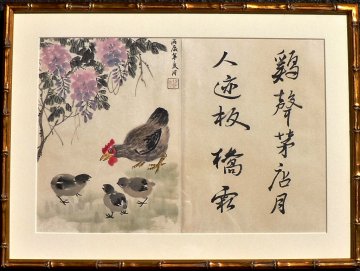 鷄聲茅店月
人迹板橋霜